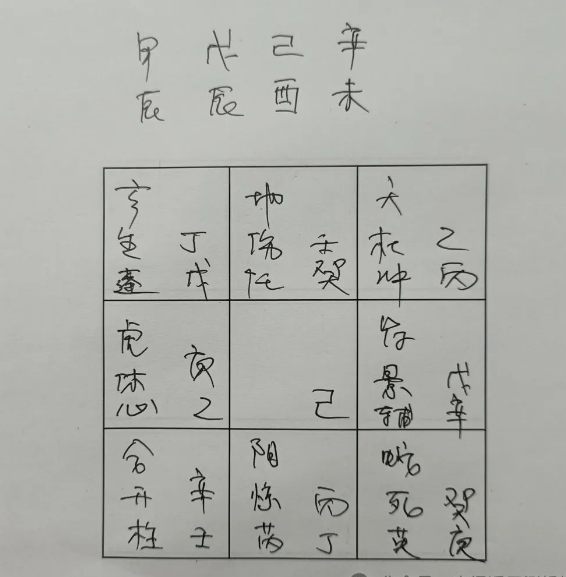 甲 戊 己 辛
辰 辰 酉 未
玄 地 天
生 丁 伤 壬 杜 乙
蓬 戊 任 癸 冲 丙
虎 符
休 庚 景 戊
心 乙 己 辅 辛
合 阳 蛇
开 辛 惊 丙 死 癸
柱 壬 芮 丁 英 庚